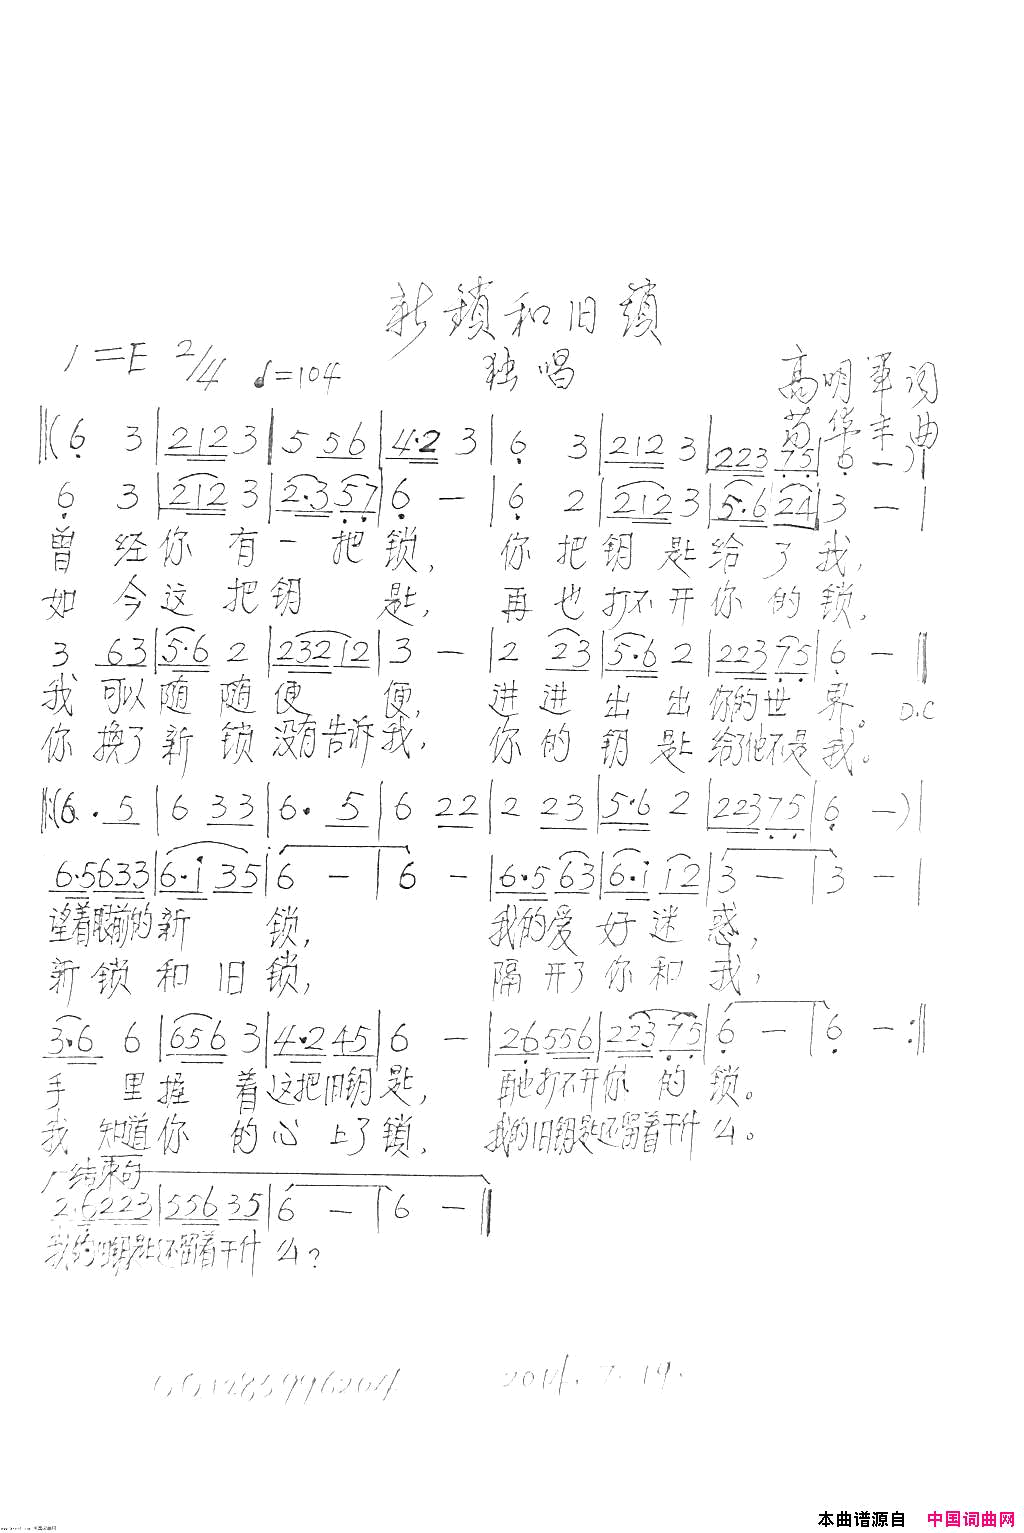 新鎖和旧鎖
1=E 2/4 ♩=104 独唱
高明军词
苟华丰曲
‖(6 3|212 3|5 56|4·2 3|6 3|212 3|223 75|6 -)|
6 3|212 3|2·3 57|6 -|6 2|212 3|5·6 24|3 -|
曾经你有一把锁，你把钥匙给了我，
如今这把钥匙，再也打不开你的锁，
3 63|5·6 2|232 12|3 -|2 23|5·6 2|223 75|6 -‖
我可以随随便便，进进出出你的世界。D.C
你换了新锁没有告诉我，你的钥匙给了他不是我。
‖:(6· 5|6 33|6· 5|6 22|2 23|5·6 2|223 75|6 -)|
6·5633|6·i 35|6 -|6 -|6·5 63|6·i i2|3 -|3 -|
望着眼前的新锁，我的爱好迷惑，
新锁和旧锁，隔开了你和我，
3·6 6|656 3|4·2 45|6 -|26 556|223 75|6 -|6 -:‖
手里握着这把旧钥匙，再也打不开你的锁。
我知道你的心上了锁，我的旧钥匙还留着干什么。
结束句
2·6 223|556 35|6 -|6 -‖
我的旧钥匙还留着干什么？
2014.7.19.
本曲谱源自 中国词曲网